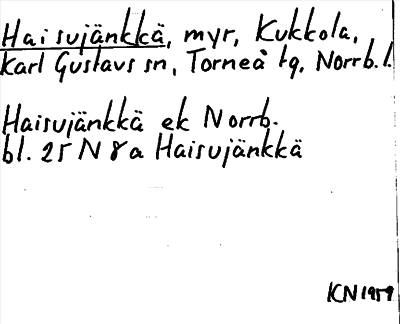 Haisujänkkä, myr, Kukkola,
Karl Gustavs sn, Torneå tg, Norrb.l.
Haisujänkkä ek Norrb.
bl. 25 N 8 a Haisujänkkä
KN 1959